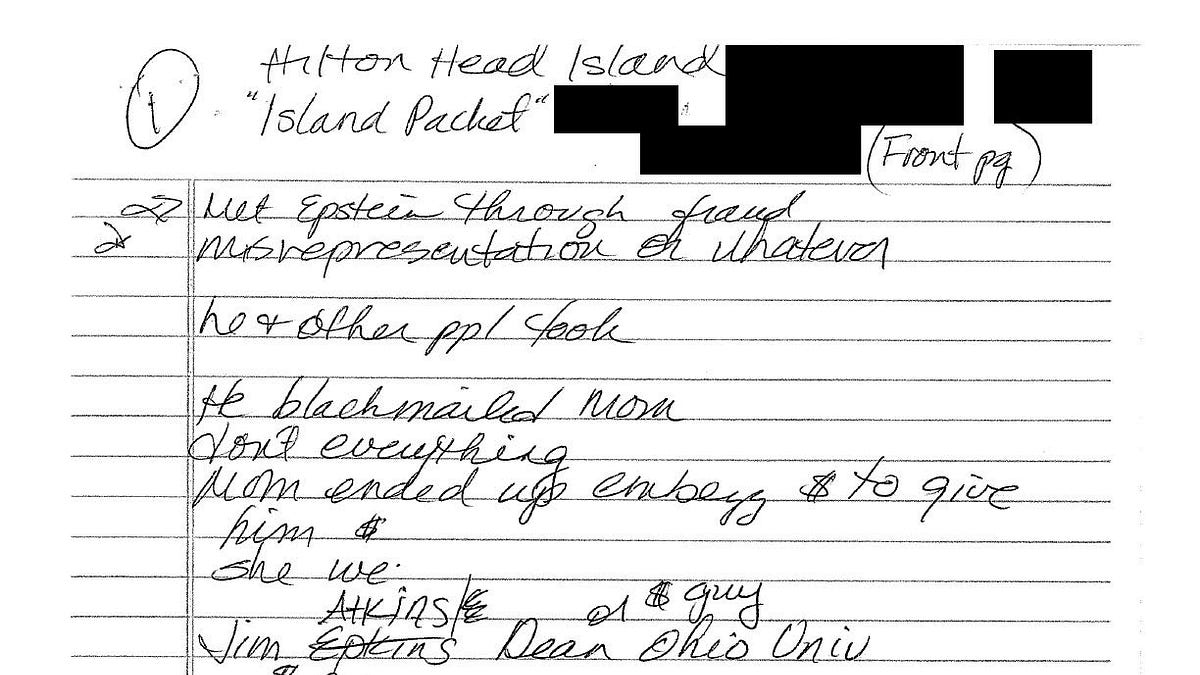 1 Hilton Head Island
"Island Packet"
(Front pg)
Met Epstein through fraud
misrepresentation or whatever
he + other ppl took
He blackmailed Mom
don't everything
Mom ended up embezz $ to give
him $
she we
Atkins/ $ guy
Jim Epkins Dean Ohio Univ